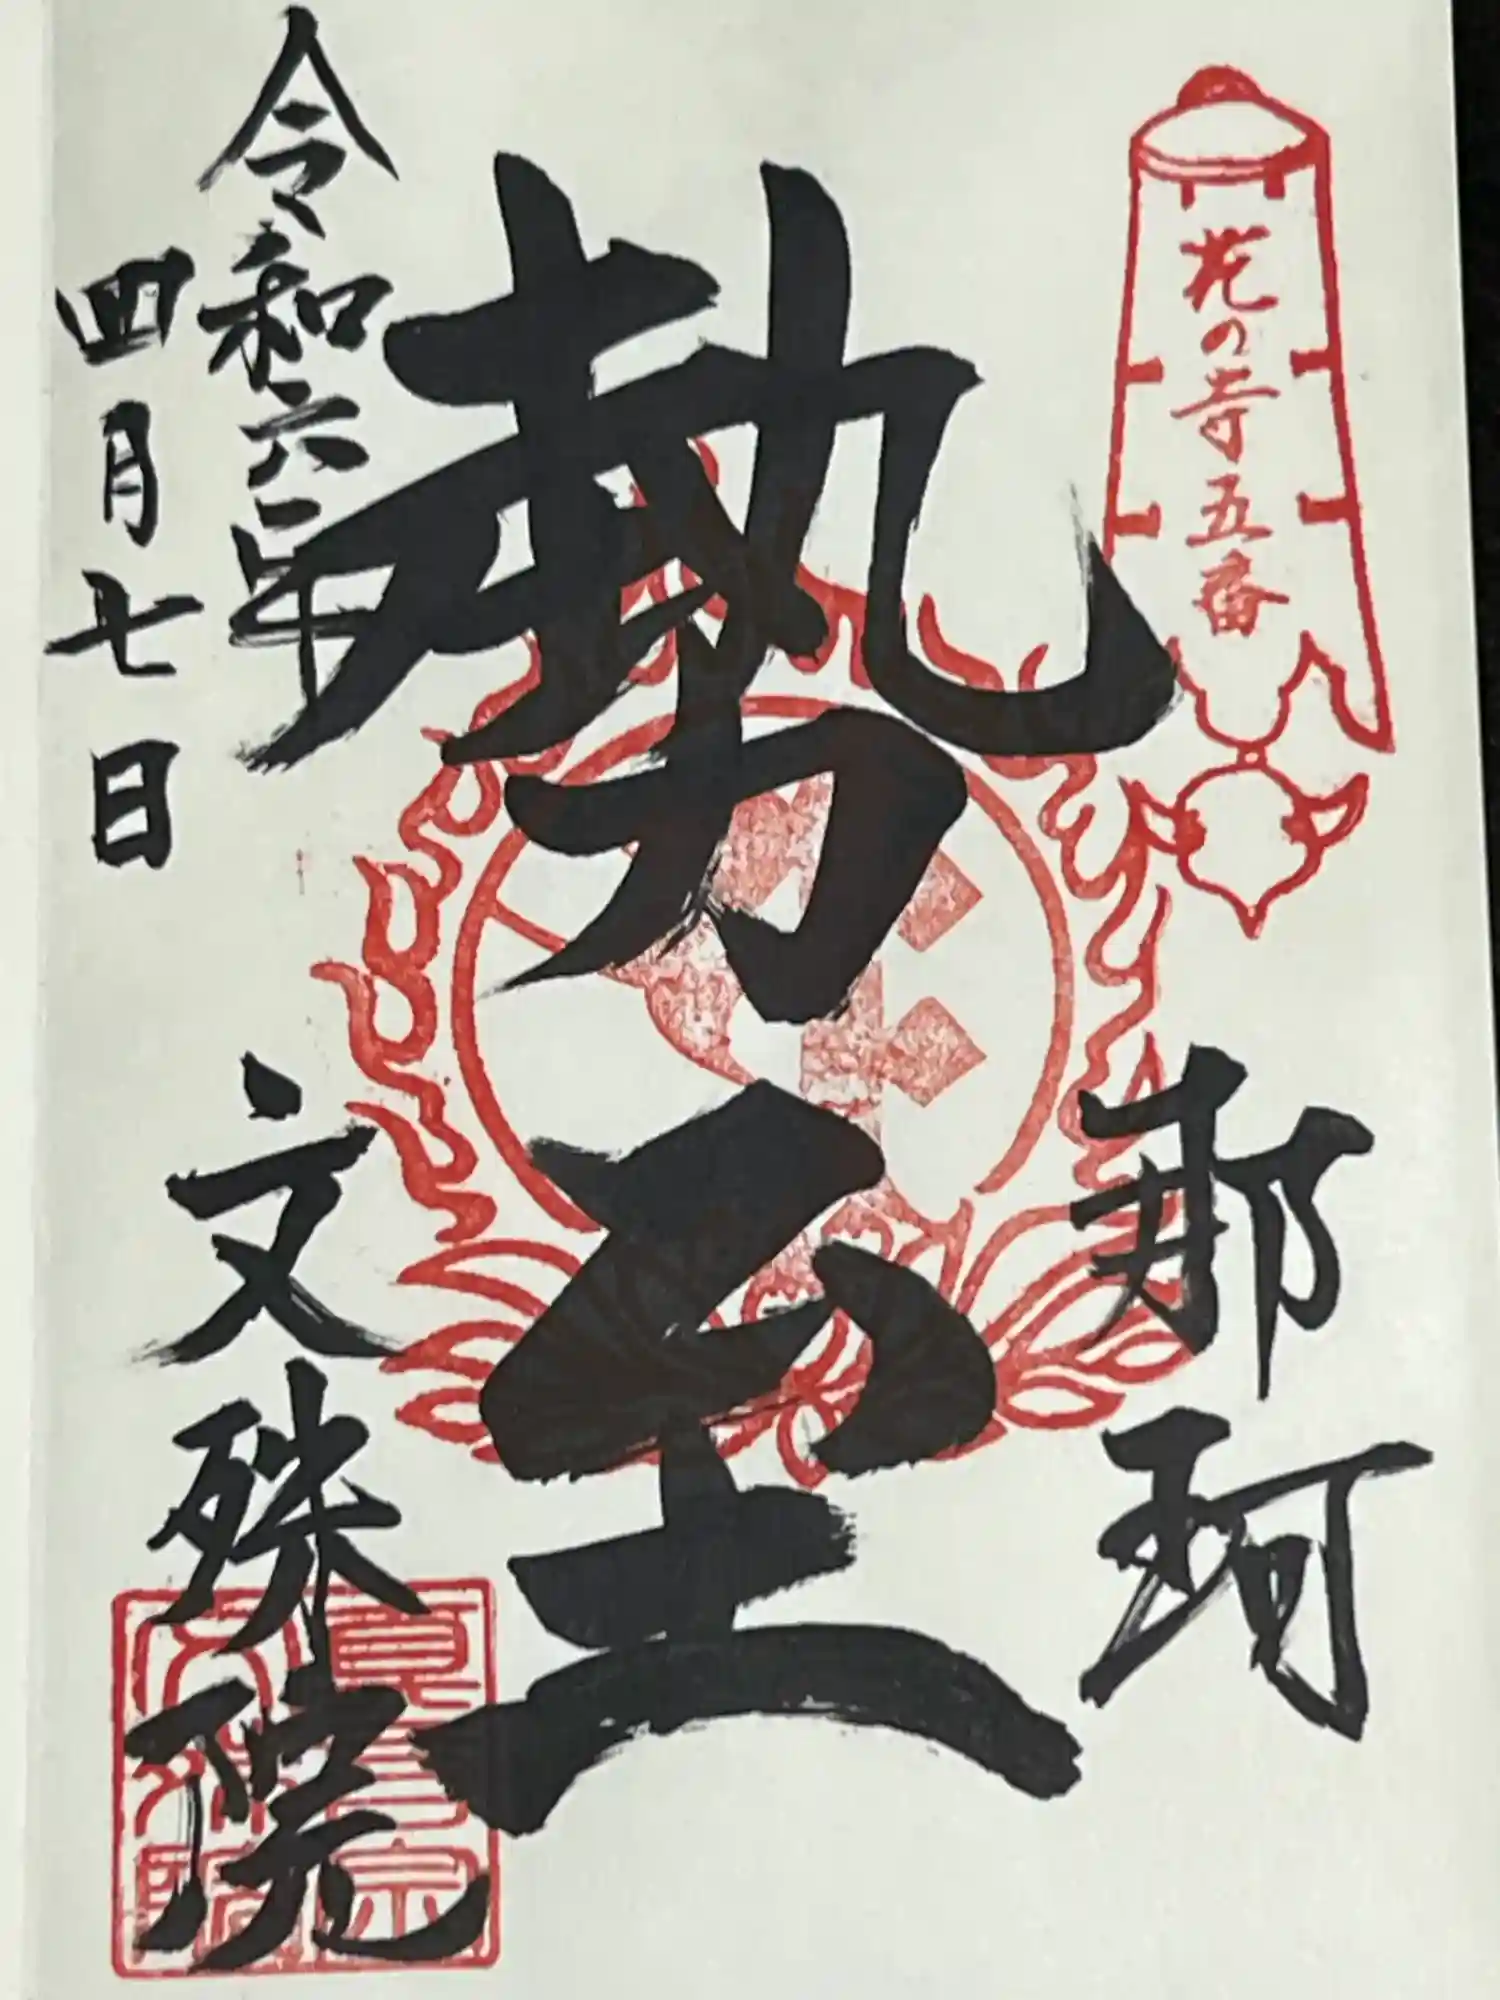 花の寺五番
那珂
勢至
令和六年
四月七日
文殊院